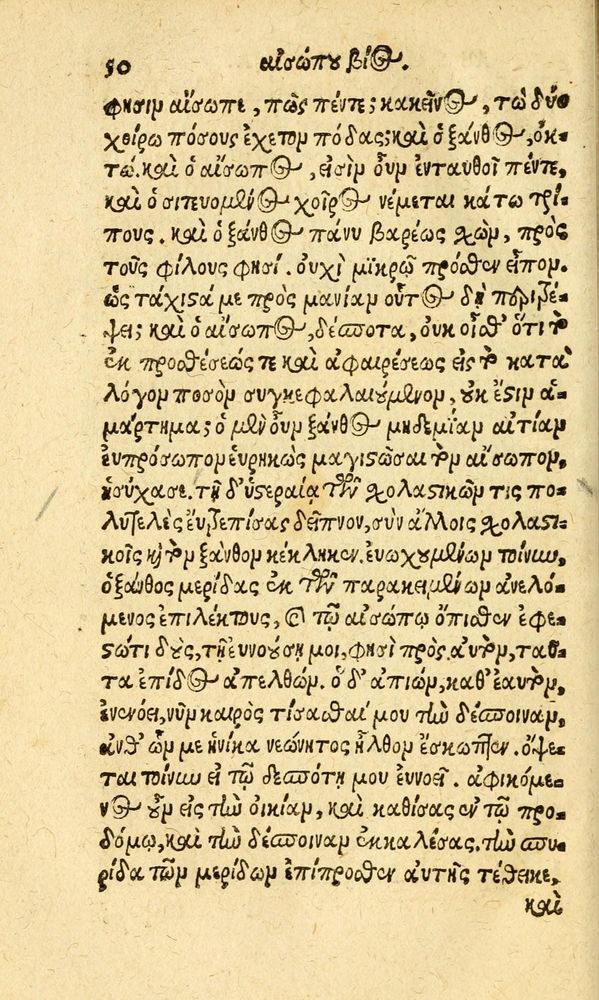 50 αἰσώπου βίος.
φησιν αἴσωπε, πῶς πέντε; κακεῖνος, τὼ δύο
χοίρω πόσους ἔχετον πόδας; καὶ ὁ ξάνθος, ὀκ-
τώ. καὶ ὁ αἴσωπος, εἰσὶν οὖν ἐνταυθοῖ πέντε,
καὶ ὁ σιτευομενος χοῖρος νέμεται κάτω τρί-
πους. καὶ ὁ ξάνθος πάνυ βαρέως χὼν, πρὸς
τοὺς φίλους φησί. οὐχὶ μικρῷ πρόσθεν εἶπον.
ὡς τάχιστά με πρὸς μανίαν οὗτος δὴ περιτρέ-
ψει; καὶ ὁ αἴσωπος, δέσποτα, οὐκ οἶσθ' ὅτι τὸ
ἐκ προσθέσεώς τε καὶ ἀφαιρέσεως εἰς τὸ κατὰ
λόγον ποσὸν συγκεφαλαιούμενον, οὐκ ἔστιν ἁ-
μάρτημα; ὁ μὲν οὖν ξάνθος μηδεμίαν αἰτίαν
εὐπρόσωπον εὑρηκὼς μαστιγῶσαι τὸν αἴσωπον,
ἡσύχασε. τῇ δ' ὑστεραίᾳ τῶν σχολαστικῶν τις πο-
λυτελὲς εὐτρεπίσας δεῖπνον, σὺν ἄλλοις σχολαστι-
κοῖς καὶ τὸν ξάνθον κέκληκεν. εὐωχουμένων τοίνυν,
ὁ ξάνθος μερίδας ἐκ τῶν παρακειμένων ἀνελό-
μενος ἐπιλέκτους, καὶ τῷ αἰσώπῳ ὄπισθεν ἐφε-
στῶτι δοὺς, τῇ εὐνούσῃ μοι, φησὶ πρὸς αὐτὸν, ταῦ-
τα ἐπίδος ἀπελθών. ὁ δ' ἀπιὼν, καθ' ἑαυτὸν,
ἐνενόει, νῦν καιρὸς τίσασθαί μου τὴν δέσποιναν,
ἀνθ' ὧν με ἡνίκα νεώνητος ἦλθον ἔσκωπτεν. ὄψε-
ται τοίνυν εἰ τῷ δεσπότῃ μου εὐνοεῖ. ἀφικόμε-
νος οὖν εἰς τὴν οἰκίαν, καὶ καθίσας ἐν τῷ προ-
δόμῳ, καὶ τὴν δέσποιναν ἐκκαλέσας. τὴν σπυ-
ρίδα τῶν μερίδων ἐπίπροσθεν αὐτῆς τέθεικε,
καὶ